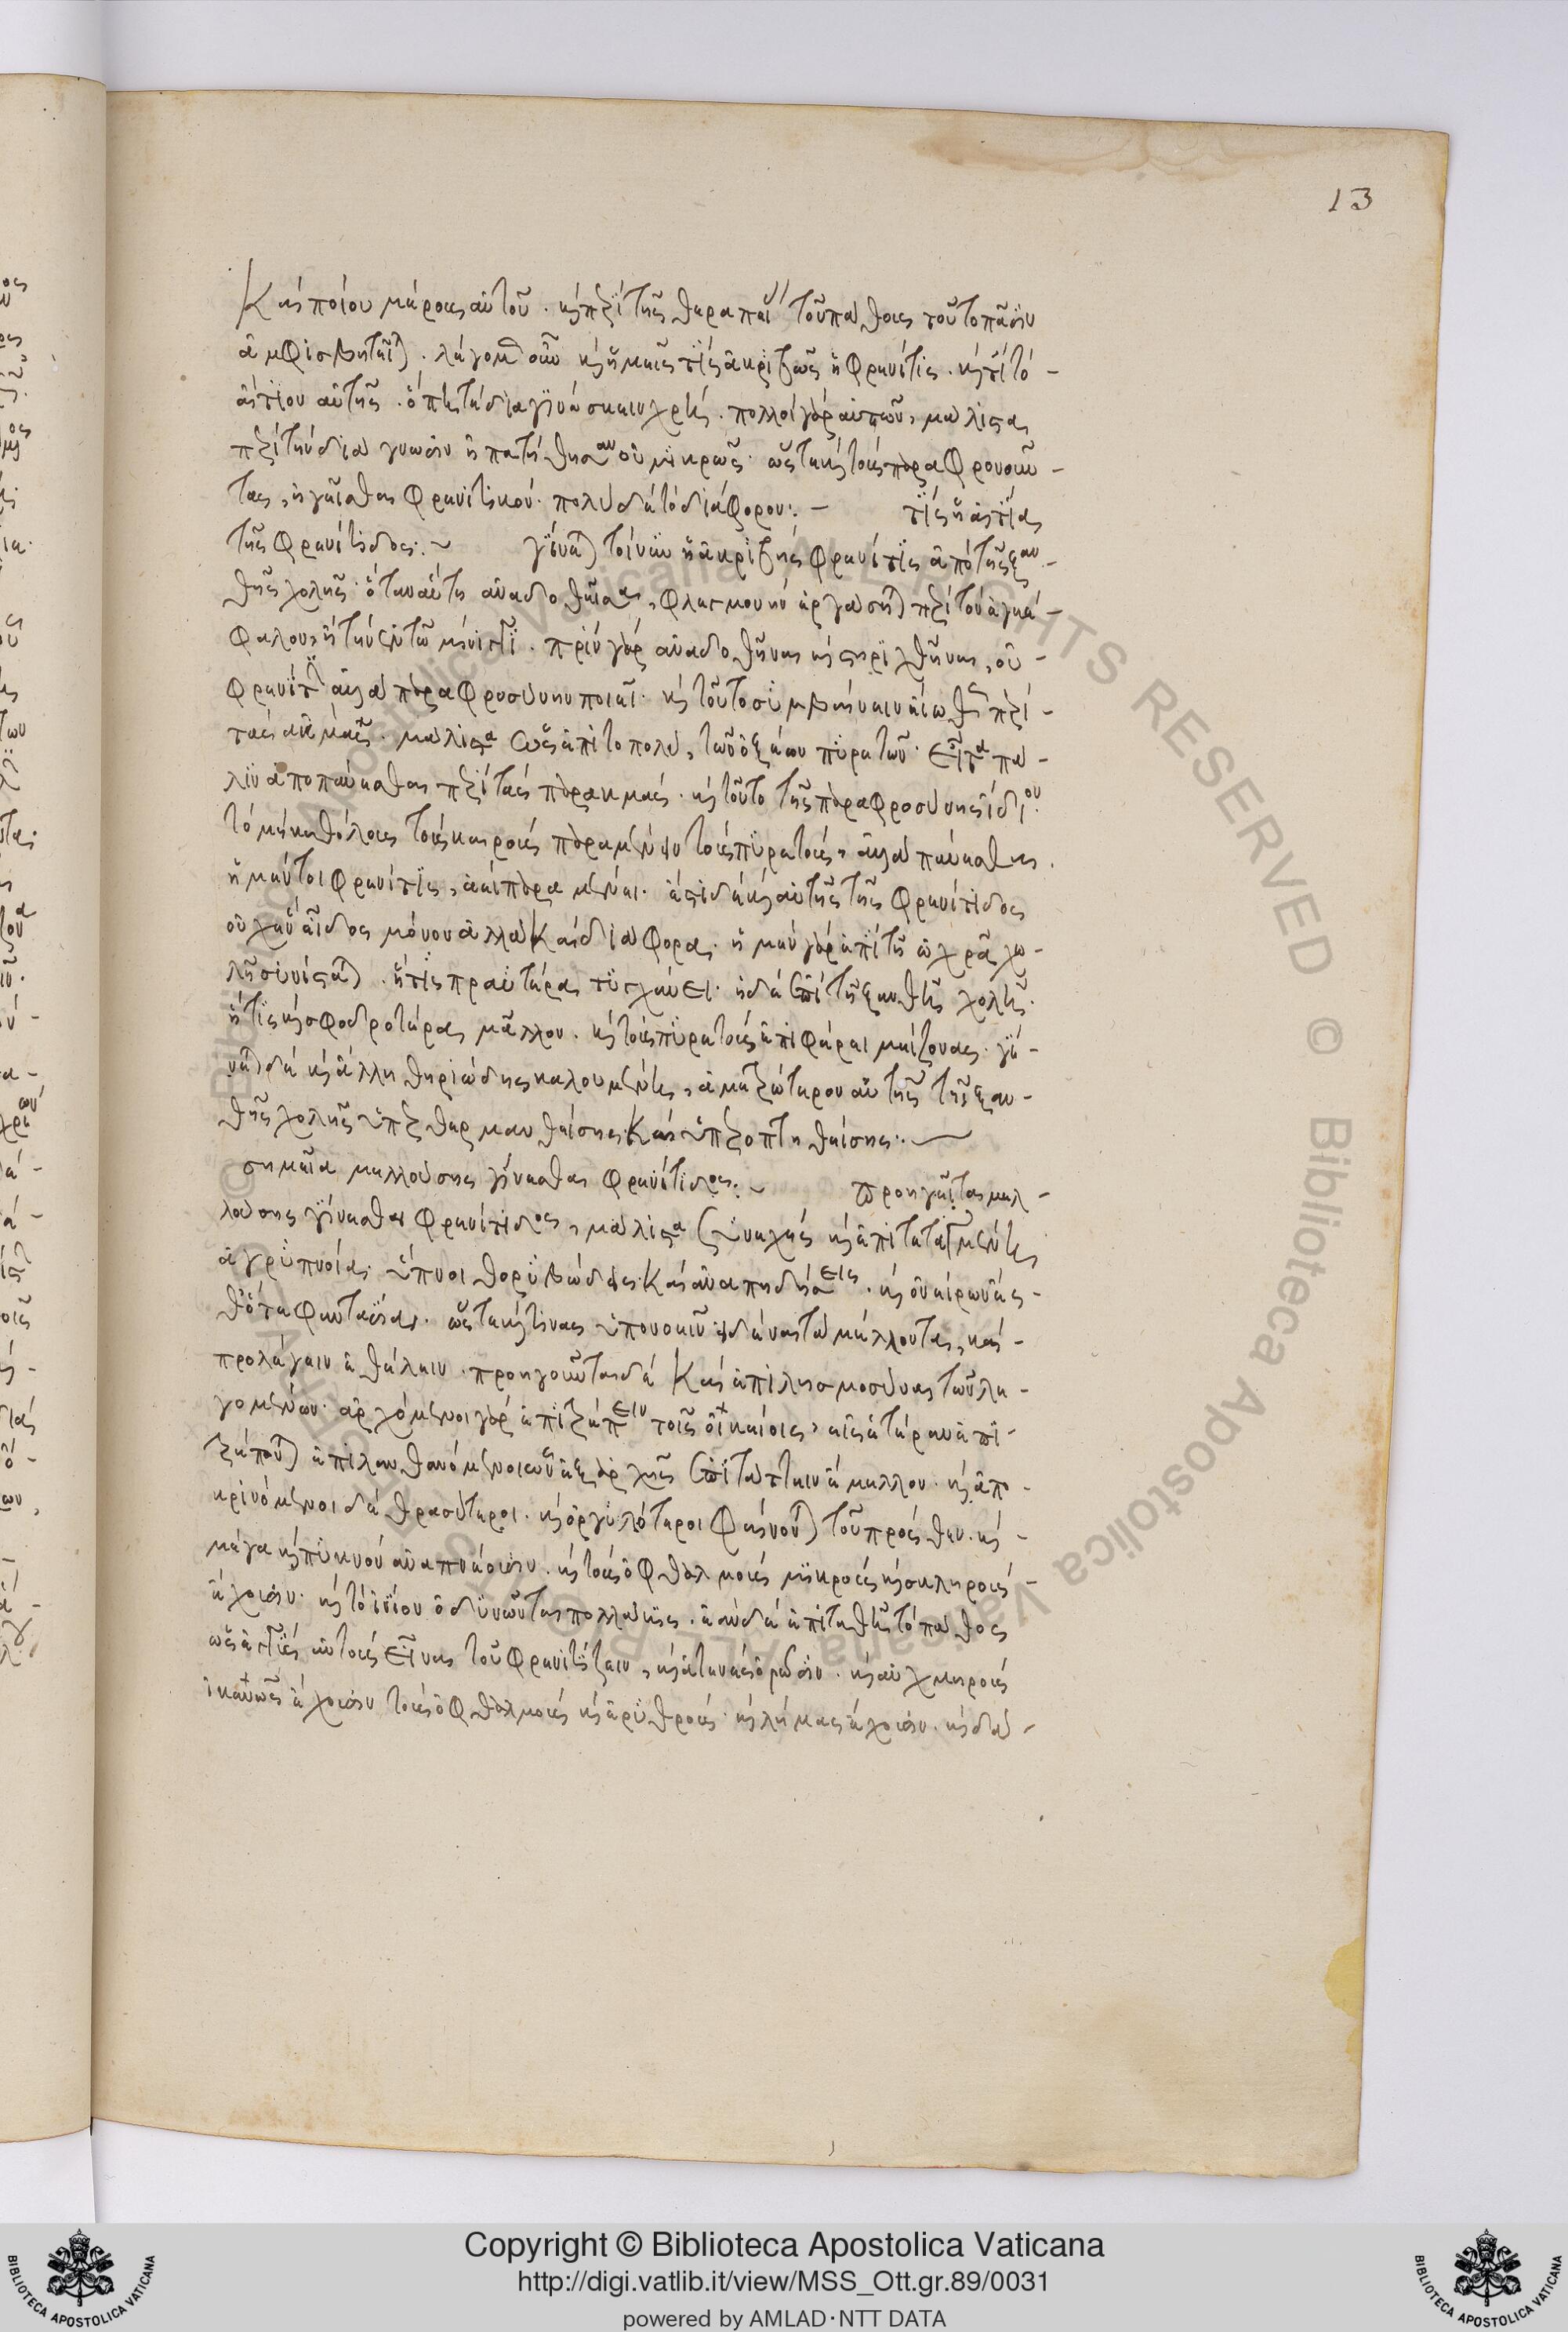 13
Καὶ ποίου μέρους αὐτοῦ. καὶ περὶ τῆς θεραπεί τοῦ πάθους τοῦτο πᾶσιν
ἀμφισβητεῖται. λέγομεν οὖν καὶ ἡμεῖς τίς ἀκριβῶς ἡ φρενίτις. καὶ τί τὸ
αἴτιον αὐτῆς. ὅπερ διαγινώσκειν χρή. πολλοὶ γὰρ αὐτῶν, μάλιστα
περὶ τὴν διάγνωσιν ἠπατήθησαν οὐ μικρῶς. ὥστε καὶ τοὺς παραφρονοῦν-
τας, ἡγεῖσθαι φρενιτικούς. πολὺ δὲ τὸ διάφορον:- τίς ἡ αἰτία
τῆς φρενίτιδος:~ γίνεται τοίνυν ἡ ἀκριβὴς φρενίτις ἀπὸ τῆς ξαν-
θῆς χολῆς. ὅταν αὕτη ἀναδοθεῖσα, φλεγμονὴν ἐργάσηται περὶ τὸν ἐγκέ-
φαλον, ἢ τὴν ἐν τῷ μήνιγγι. πρὶν γὰρ ἀναδοθῆναι καὶ στηριχθῆναι, οὐ
φρενίτιν ἀλλὰ παραφροσύνην ποιεῖ. καὶ τοῦτο συμβαίνειν εἴωθε περὶ
τὰς ἀκμάς. μάλιστα ὡς ἐπὶ τὸ πολὺ, τῶν ὀξέων πυρετῶν. εἶτα πά-
λιν ἀποπαύεσθαι περὶ τὰς παρακμάς. καὶ τοῦτο τῆς παραφροσύνης ἴδιον.
τὸ μὴ καθόλου τοὺς καιροὺς παραμένειν τοὺς πυρετοὺς, ἀλλὰ παύεσθαι.
ἡ μέντοι φρενίτις, ἀεὶ παραμένει. ἔστι δὲ καὶ αὐτῆς τῆς φρενίτιδος
οὐχ ἓν εἶδος μόνον ἀλλὰ καὶ διάφορα. ἡ μὲν γὰρ ἐπὶ τῇ ὠχρᾷ χο-
λῇ συνίσταται. ἥτις πραϋτέρα τυγχάνει. ἡ δὲ ἐπὶ τῇ ξανθῇ χολῇ.
ἥτις καὶ σφοδροτέρα μᾶλλον. καὶ τοὺς πυρετοὺς ἐπιφέρει μείζονας. γί-
νεται δὲ καὶ ἄλλη θηριώδης καλουμένη, ἐμεζώτερον αὐτῆς τῆς ξαν-
θῆς χολῆς ὑπερθερμανθείσης καὶ ὑπεροπτηθείσης:-
σημεῖα μελλούσης γίνεσθαι φρενίτιδος:~ προηγεῖται μελ-
λούσης γίνεσθαι φρενίτιδος, μάλιστα συνεχὴς καὶ ἐπιτεταμένη
ἀγρυπνία. ὕπνοι θορυβώδεις. καὶ ἀναπηδήσεις. καὶ οὐκ εἰρων
φαντασίαι. ὥστε καὶ τινας ὑπονοεῖν μέλλοντας, καὶ
προλέγειν ἐθέλειν. προηγοῦνται δὲ καὶ ἐπιλησμοσύναι τῶν λε-
γομένων. ἀρχόμενοι γὰρ ἐπιβλέπειν τοῖς οἰκείοις, εἰς ἕτερον ἐπι-
βλέπονται ἐπιλανθανόμενοι ὧν ἐξ ἀρχῆς ἐπιτάττειν ἔμελλον. καὶ ἀπο-
κρινόμενοι δὲ θρασύτεροι. καὶ ὀργιλότεροι φαίνονται τοῦ πρόσθεν. καὶ
μέγα καὶ πυκνὸν ἀναπνέουσιν. καὶ τοὺς ὀφθαλμοὺς μικροὺς καὶ σκληροὺς
ἔχουσιν. καὶ τὸ ἰνίον ὀδυνῶνται πολλάκις. ἐὰν δὲ ἐπιταθῇ τὸ πάθος
ὡς αὐτοὺς εἶναι τοῦ φρενιτίζειν, καὶ ἀτενὲς ὁρῶσιν. καὶ αὐχμηροὺς
ἱκανῶς ἔχουσιν τοὺς ὀφθαλμοὺς καὶ ἐρυθρούς. καὶ λήμας ἔχουσιν. καὶ δά-
Copyright © Biblioteca Apostolica Vaticana
http://digi.vatlib.it/view/MSS_Ott.gr.89/0031
powered by AMLAD·NTT DATA